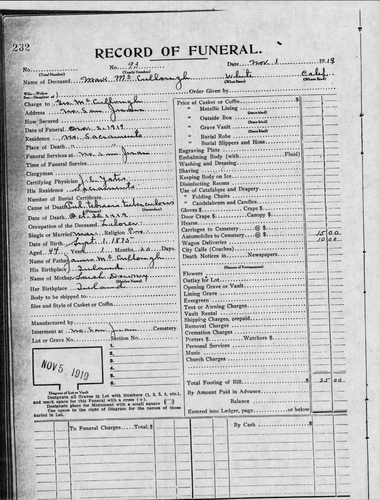 232
RECORD OF FUNERAL.
No. No. 92 Date Nov. 1 1919
(Total Number) (Yearly Number)
Name of Deceased McCullough White Calif.
(What Race) (Where Born)
Order Given by
Charge to McCullough
Address
How Secured
Date of Funeral Nov. 2, 1919
Residence No. Sacramento
Place of Death
Funeral Services at
Time of Funeral Service
Clergyman
Certifying Physician J. E. Yates
His Residence Sacramento
Number of Burial Certificate
Cause of Death Tuberculosis
(Primary) (Secondary)
Date of Death Oct. 30, 1919
Occupation of the Deceased Laborer
Single or Married Religion
Date of Birth Sept. 1, 1875
Aged 44 Years 1 Months 30 Days
Name of Father McCullough
His Birthplace Ireland
Name of Mother Sarah
(Maiden Name)
Her Birthplace Ireland
Body to be shipped to
Size and Style of Casket or Coffin
Manufactured by
Interment at Cemetery.
Lot or Grave No. Section No.
NOV 5 1919
1
2
3
4
5
6
7
8
Diagram of Lot or Vault
Designate all Graves in Lot with Numbers (1, 2, 3, 4, etc.),
and mark space for this Funeral with a cross (+).
Designate place for Monument with a small square
Use space to the right of Diagram for the names of those
buried in Lot.
Price of Casket or Coffin
" Metallic Lining
" Outside Box
" Grave Vault
" Burial Robe
" Burial Slippers and Hose
Engraving Plate
Embalming Body (with Fluid)
Washing and Dressing
Shaving
Keeping Body on Ice
Disinfecting Rooms
Use of Catafalque and Drapery
" Folding Chairs
" Candelabrum and Candles
Gloves $ Crape $
Door Crape $ Canopy $
Hearse
Carriages to Cemetery @ $
Automobiles to Cemetery @ $ 15 00
Wagon Deliveries 10 00
City Calls (Coaches)
Death Notices in Newspapers
(Names of Newspapers)
Flowers
Outlay for Lot
Opening Grave or Vault
Lining Grave
Evergreen
Tent or Awning Charges
Vault Rental
Shipping Charges, prepaid
Removal Charges
Cremation Charges
Porters $ Watchers $
Personal Services
Music
Church Charges
Total Footing of Bill $ 25 00
By Amount Paid in Advance
Balance
Entered into Ledger, page or below
To Funeral Charges, Total $
By Cash $